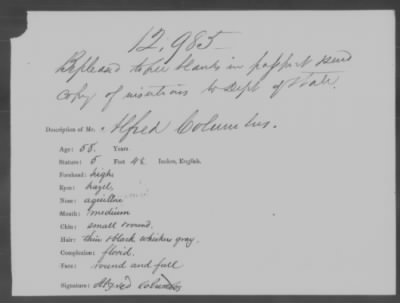 12,985
Replaced three blanks in passport send
copy of insertions to Dept of State.
Description of Mr. Alfred Columbus.
Age: 55. Years.
Stature: 5 Feet 4½ Inches, English.
Forehead: high
Eyes: hazel
Nose: aquiline
Mouth: medium
Chin: small round.
Hair: thin black whiskers gray.
Complexion: florid.
Face: round and full
Signature: Alfred Columbus